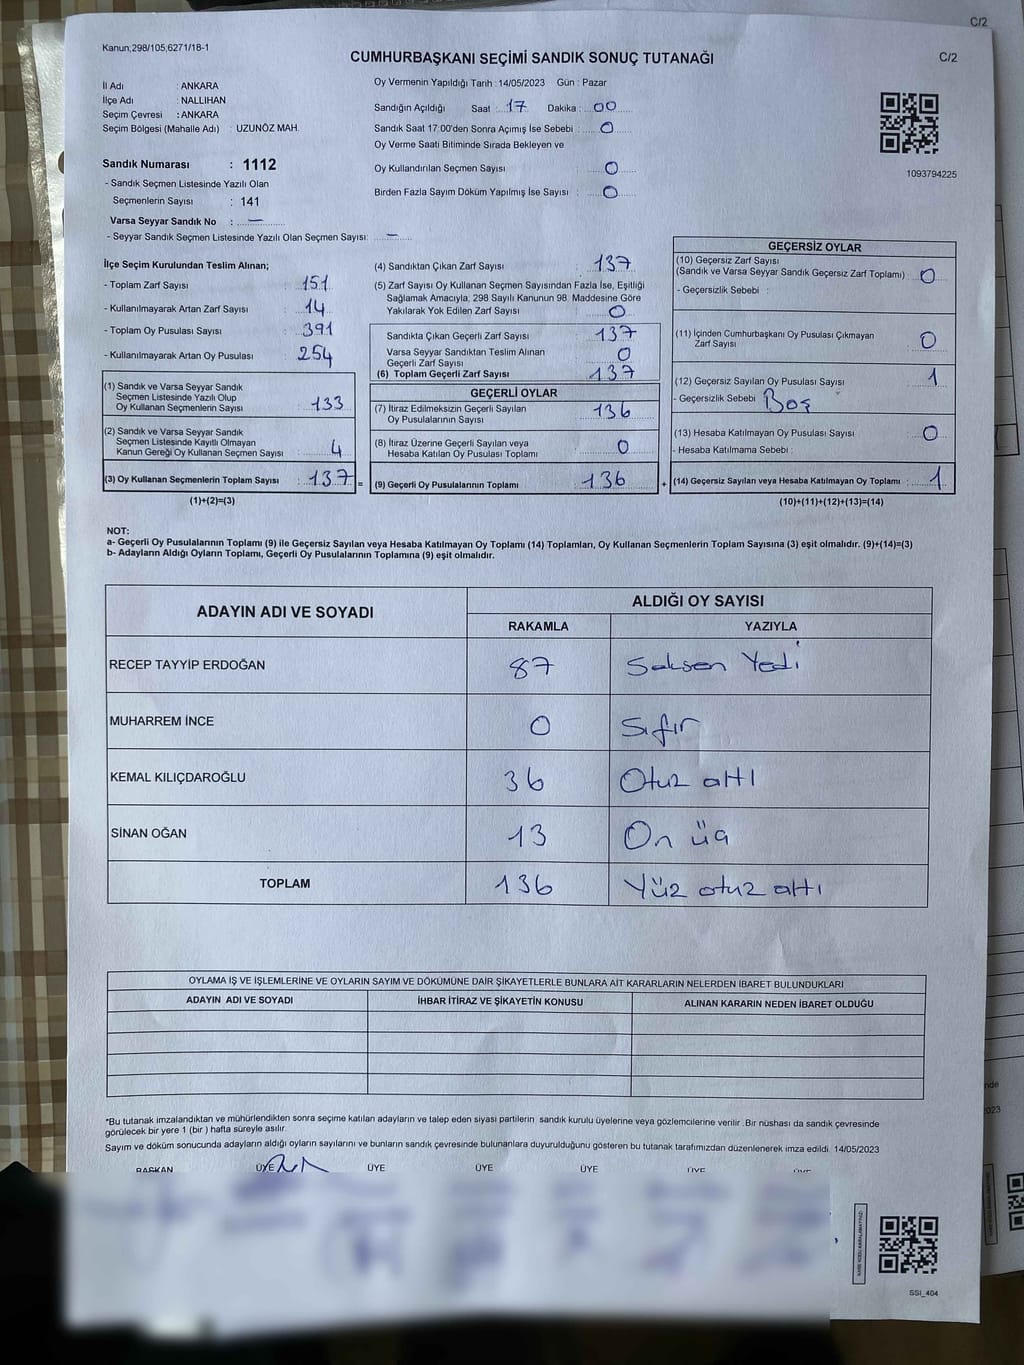 C/2
Kanun;298/105;6271/18-1
C/2
CUMHURBAŞKANI SEÇİMİ SANDIK SONUÇ TUTANAĞI
İl Adı : ANKARA
İlçe Adı : NALLIHAN
Seçim Çevresi : ANKARA
Seçim Bölgesi (Mahalle Adı) : UZUNÖZ MAH.
Sandık Numarası : 1112
- Sandık Seçmen Listesinde Yazılı Olan
Seçmenlerin Sayısı : 141
Varsa Seyyar Sandık No : —
- Seyyar Sandık Seçmen Listesinde Yazılı Olan Seçmen Sayısı: —
Oy Vermenin Yapıldığı Tarih : 14/05/2023 Gün : Pazar
Sandığın Açıldığı Saat : 17 Dakika : 00
Sandık Saat 17:00'den Sonra Açımış İse Sebebi : 0
Oy Verme Saati Bitiminde Sırada Bekleyen ve
Oy Kullandırılan Seçmen Sayısı : 0
Birden Fazla Sayım Döküm Yapılmış İse Sayısı : 0
1093794225
İlçe Seçim Kurulundan Teslim Alınan;
- Toplam Zarf Sayısı : 151
- Kullanılmayarak Artan Zarf Sayısı : 14
- Toplam Oy Pusulası Sayısı : 391
- Kullanılmayarak Artan Oy Pusulası : 254
(1) Sandık ve Varsa Seyyar Sandık
Seçmen Listesinde Yazılı Olup
Oy Kullanan Seçmenlerin Sayısı : 133
(2) Sandık ve Varsa Seyyar Sandık
Seçmen Listesinde Kayıtlı Olmayan
Kanun Gereği Oy Kullanan Seçmen Sayısı : 4
(3) Oy Kullanan Seçmenlerin Toplam Sayısı : 137 =
(1)+(2)=(3)
(4) Sandıktan Çıkan Zarf Sayısı : 137
(5) Zarf Sayısı Oy Kullanan Seçmen Sayısından Fazla İse, Eşitliği
Sağlamak Amacıyla, 298 Sayılı Kanunun 98. Maddesine Göre
Yakılarak Yok Edilen Zarf Sayısı : 0
Sandıkta Çıkan Geçerli Zarf Sayısı : 137
Varsa Seyyar Sandıktan Teslim Alınan
Geçerli Zarf Sayısı : 0
(6) Toplam Geçerli Zarf Sayısı : 137
GEÇERLİ OYLAR
(7) İtiraz Edilmeksizin Geçerli Sayılan
Oy Pusulalarının Sayısı : 136
(8) İtiraz Üzerine Geçerli Sayılan veya
Hesaba Katılan Oy Pusulası Toplamı : 0
(9) Geçerli Oy Pusulalarının Toplamı : 136 +
GEÇERSİZ OYLAR
(10) Geçersiz Zarf Sayısı
(Sandık ve Varsa Seyyar Sandık Geçersiz Zarf Toplamı) : 0
- Geçersizlik Sebebi :
(11) İçinden Cumhurbaşkanı Oy Pusulası Çıkmayan
Zarf Sayısı : 0
(12) Geçersiz Sayılan Oy Pusulası Sayısı : 1
- Geçersizlik Sebebi : Boş
(13) Hesaba Katılmayan Oy Pusulası Sayısı : 0
- Hesaba Katılmama Sebebi :
(14) Geçersiz Sayılan veya Hesaba Katılmayan Oy Toplamı : 1
(10)+(11)+(12)+(13)=(14)
NOT:
a- Geçerli Oy Pusulalarının Toplamı (9) ile Geçersiz Sayılan veya Hesaba Katılmayan Oy Toplamı (14) Toplamları, Oy Kullanan Seçmenlerin Toplam Sayısına (3) eşit olmalıdır. (9)+(14)=(3)
b- Adayların Aldığı Oyların Toplamı, Geçerli Oy Pusulalarının Toplamına (9) eşit olmalıdır.
ADAYIN ADI VE SOYADI
ALDIĞI OY SAYISI
RAKAMLA YAZIYLA
RECEP TAYYİP ERDOĞAN 87 Seksen Yedi
MUHARREM İNCE 0 Sıfır
KEMAL KILIÇDAROĞLU 36 Otuz altı
SİNAN OĞAN 13 On üç
TOPLAM 136 Yüz otuz altı
OYLAMA İŞ VE İŞLEMLERİNE VE OYLARIN SAYIM VE DÖKÜMÜNE DAİR ŞİKAYETLERLE BUNLARA AİT KARARLARIN NELERDEN İBARET BULUNDUKLARI
ADAYIN ADI VE SOYADI İHBAR İTİRAZ VE ŞİKAYETİN KONUSU ALINAN KARARIN NEDEN İBARET OLDUĞU
*Bu tutanak imzalandıktan ve mühürlendikten sonra seçime katılan adayların ve talep eden siyasi partilerin sandık kurulu üyelerine veya gözlemcilerine verilir. Bir nüshası da sandık çevresinde
görülecek bir yere 1 (bir ) hafta süreyle asılır.
Sayım ve döküm sonucunda adayların aldığı oyların sayılarını ve bunların sandık çevresinde bulunanlara duyurulduğunu gösteren bu tutanak tarafımızdan düzenlenerek imza edildi. 14/05/2023
BAŞKAN ÜYE ÜYE ÜYE ÜYE ÜYE ÜYE
SSI_404